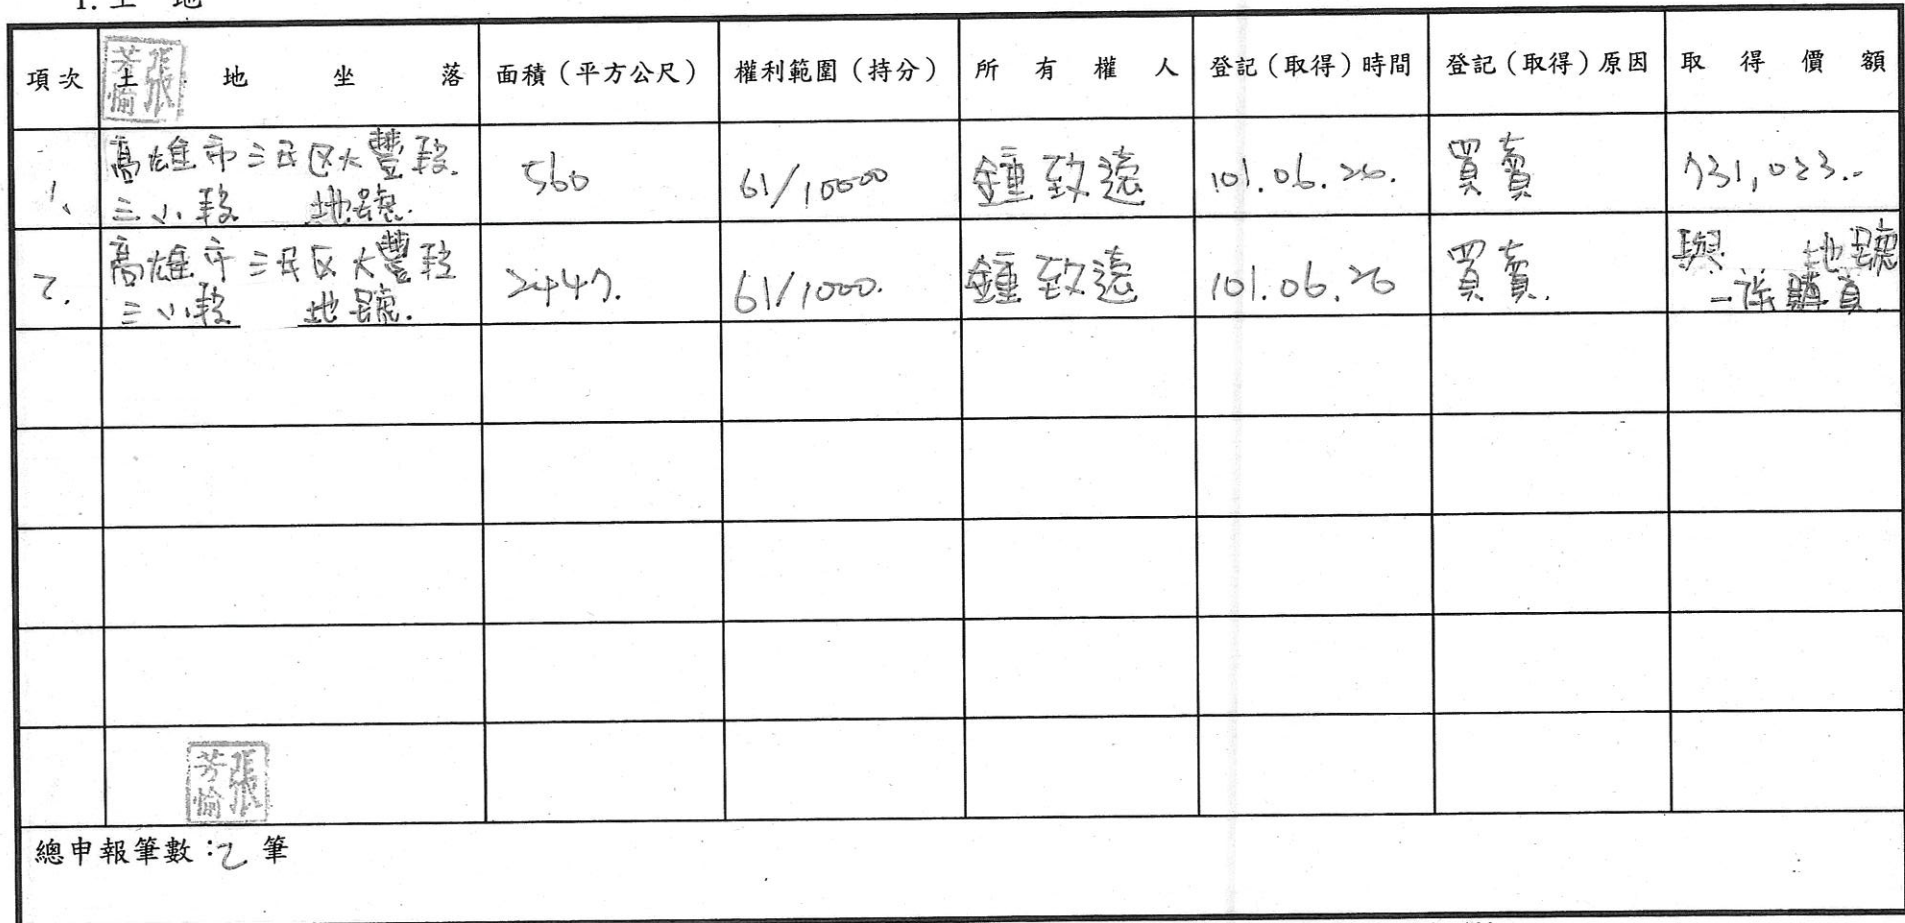 1. 土 地
項次 土地坐落 面積（平方公尺） 權利範圍（持分） 所有權人 登記（取得）時間 登記（取得）原因 取得價額
張芳愉
1、 高雄市三民区大豐段. 560 61/10000 鍾致遠 101.06.26. 買賣 731,023.-
三小段 地號.
2. 高雄市三民区大豐段 2447. 61/1000. 鍾致遠 101.06.26 買賣. 與 地號
三小段 地號. 一許購買.
張芳愉
總申報筆數：2 筆